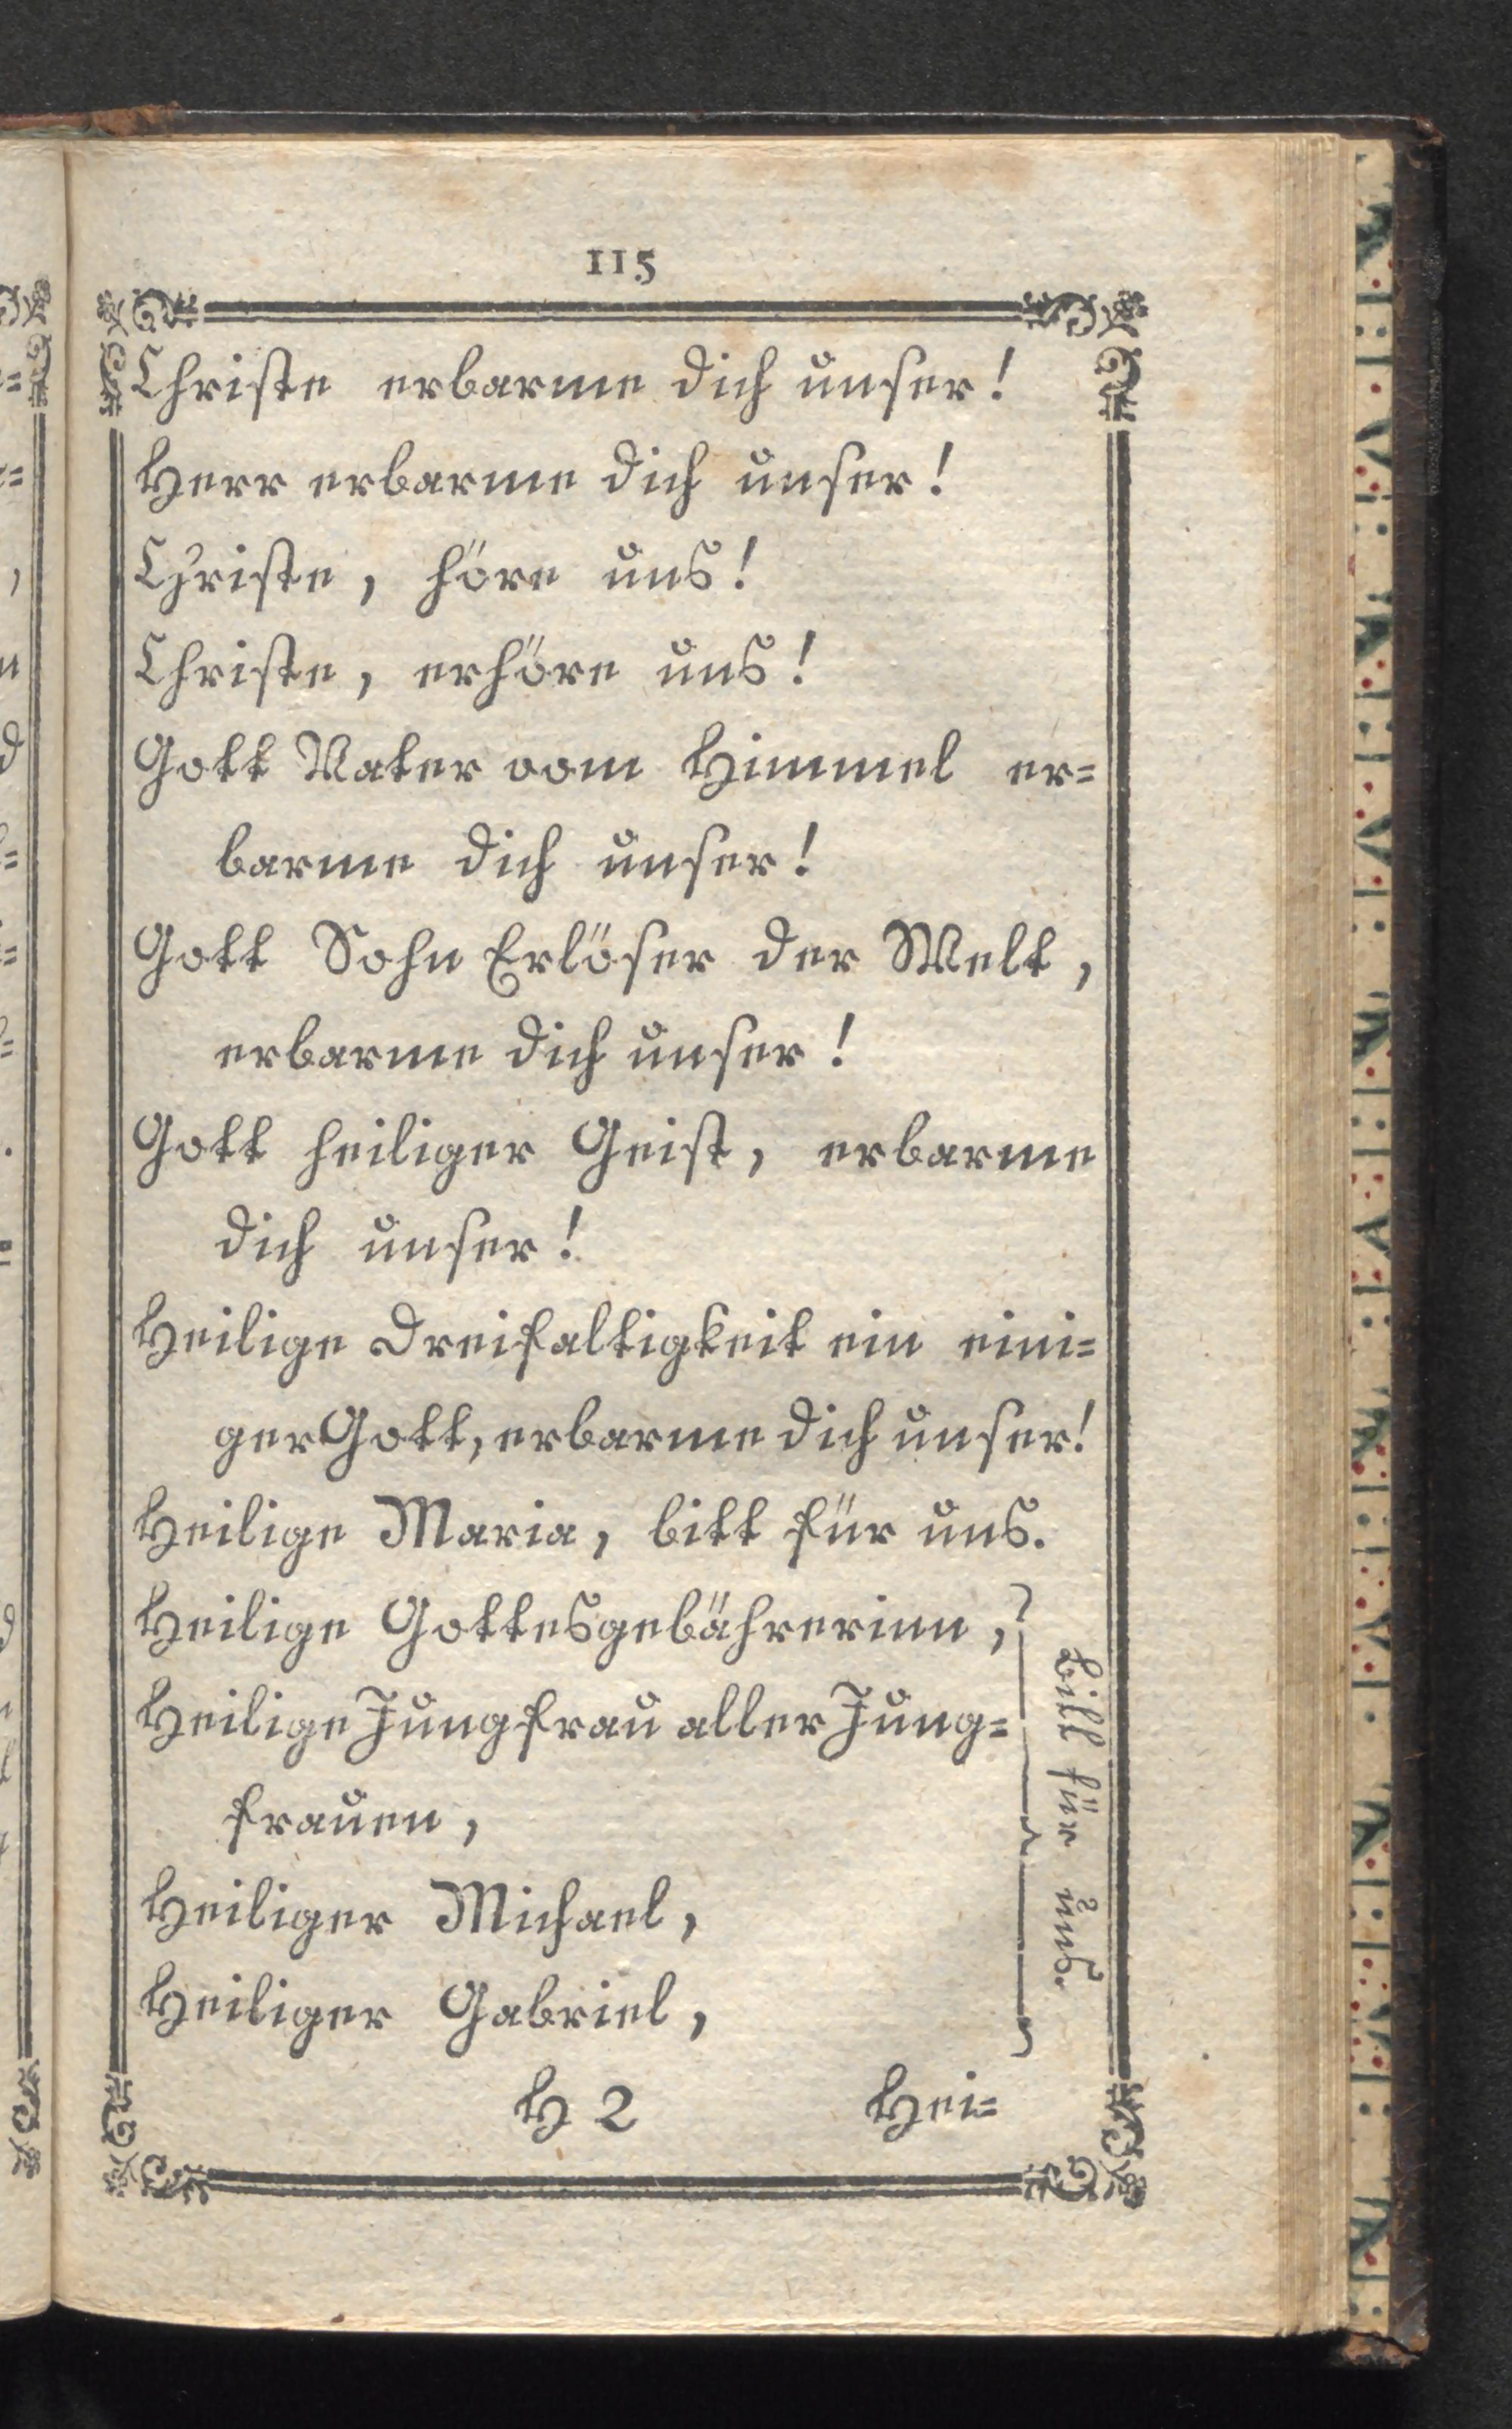 115
Christe erbarme dich unser!
Herr erbarme dich unser!
Christe, höre uns!
Christe, erhöre uns!
Gott Vater vom Himmel er=
barme dich unser!
Gott Sohn Erlöser der Welt,
erbarme dich unser!
Gott heiliger Geist, erbarme
dich unser!
Heilige Dreifaltigkeit ein eini=
ger Gott, erbarme dich unser!
Heilige Maria, bitt für uns.
Heilige Gottesgebährerinn,
Heilige Jungfrau aller Jung=
frauen,
Heiliger Michael,
Heiliger Gabriel,
bitt für uns.
H 2 Hei=